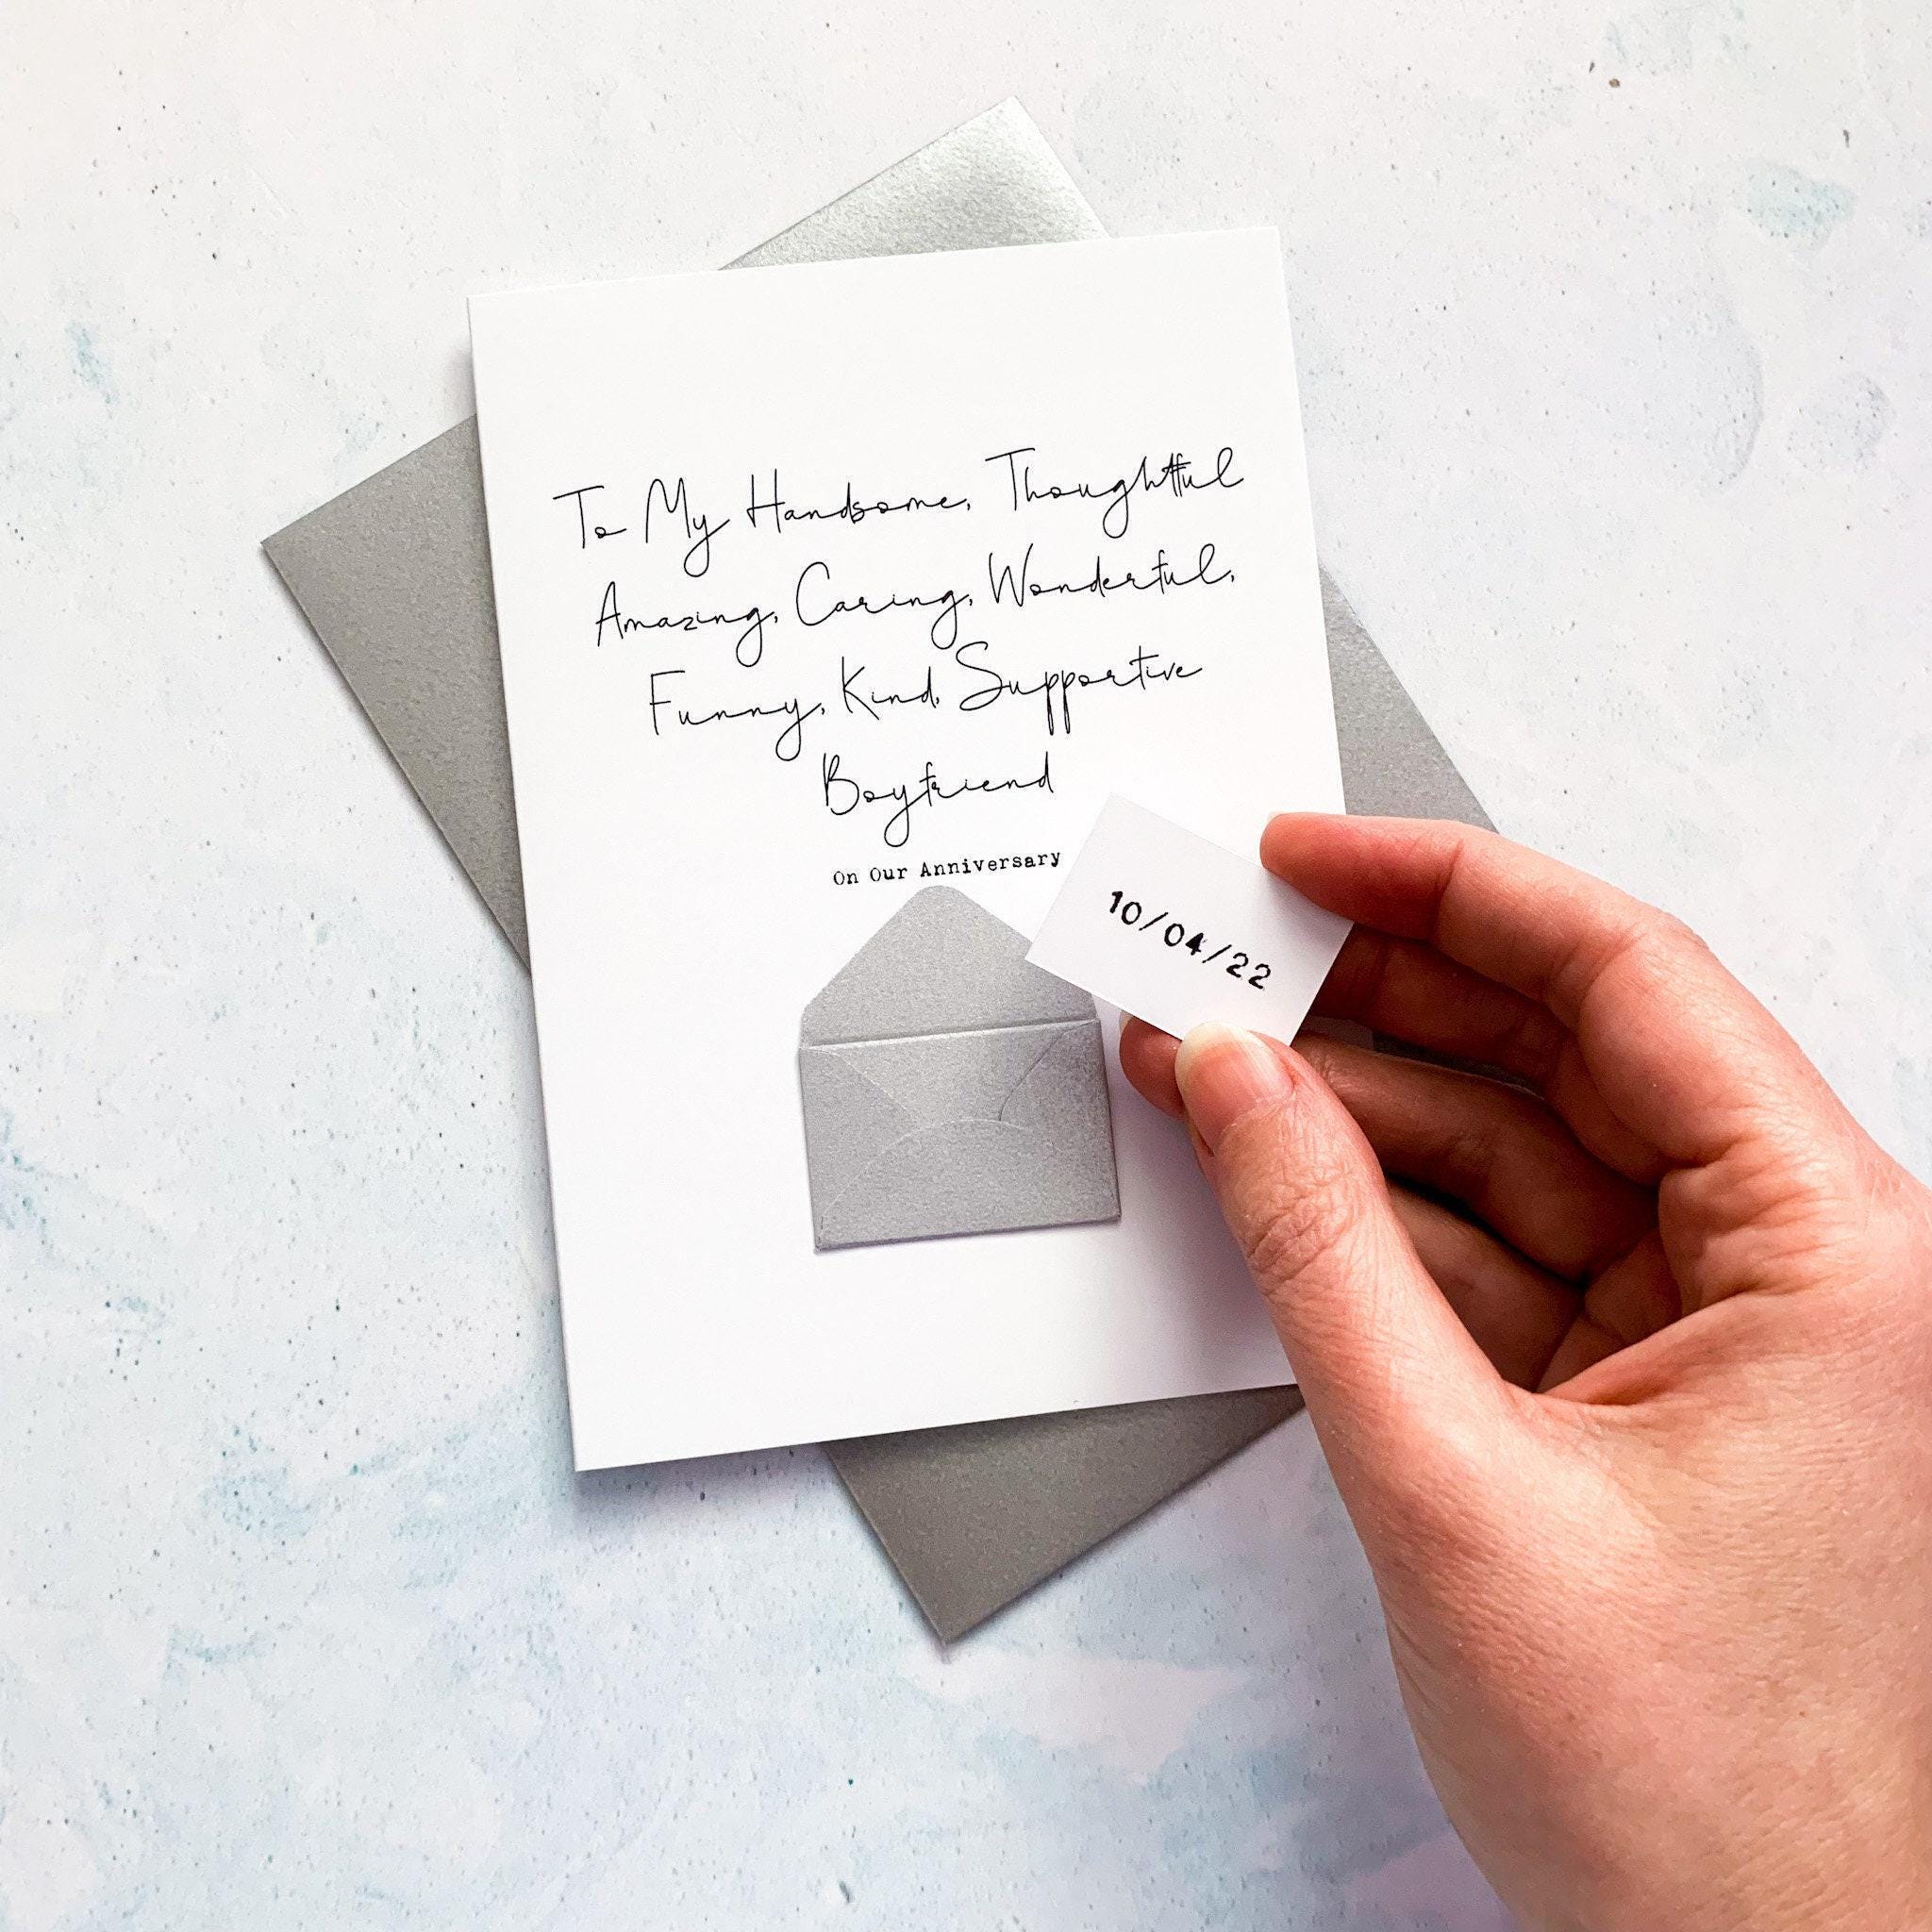 To My Handsome, Thoughtful
Amazing, Caring, Wonderful,
Funny, Kind, Supportive
Boyfriend
On Our Anniversary
10/04/22